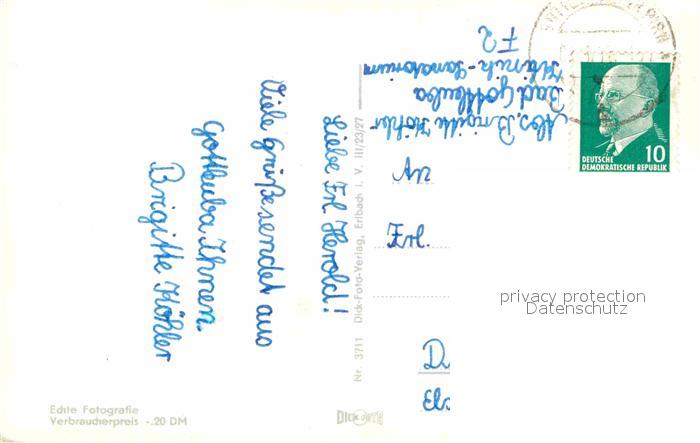 Liebe Frl Herold!
Viele Grüße sendet aus
Gottleuba Ihnen.
Brigitte Köhler
Abs. Brigitte Köhler
Bad Gottleuba
Sanatorium
F2
An
Frl.
D
DEUTSCHE
DEMOKRATISCHE REPUBLIK
10
privacy protection
Datenschutz
Nr. 3711 Dick-Foto-Verlag, Erlbach i. V. III/23/27
Echte Fotografie
Verbraucherpreis -.20 DM
DICK FOTO